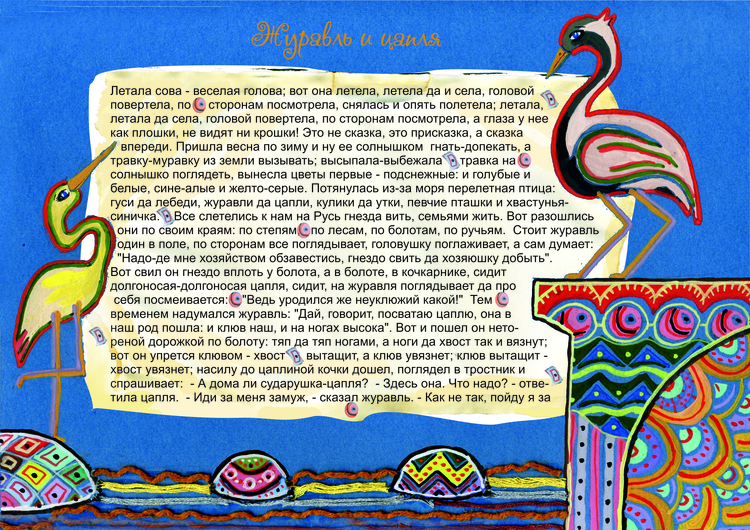 Журавль и цапля
Летала сова - веселая голова; вот она летела, летела да и села, головой
повертела, по сторонам посмотрела, снялась и опять полетела; летала,
летала да села, головой повертела, по сторонам посмотрела, а глаза у нее
как плошки, не видят ни крошки! Это не сказка, это присказка, а сказка
впереди. Пришла весна по зиму и ну ее солнышком гнать-допекать, а
травку-муравку из земли вызывать; высыпала-выбежала травка на
солнышко поглядеть, вынесла цветы первые - подснежные: и голубые и
белые, сине-алые и желто-серые. Потянулась из-за моря перелетная птица:
гуси да лебеди, журавли да цапли, кулики да утки, певчие пташки и хвастунья-
синичка. Все слетелись к нам на Русь гнезда вить, семьями жить. Вот разошлись
они по своим краям: по степям по лесам, по болотам, по ручьям. Стоит журавль
один в поле, по сторонам все поглядывает, головушку поглаживает, а сам думает:
"Надо-де мне хозяйством обзавестись, гнездо свить да хозяюшку добыть".
Вот свил он гнездо вплоть у болота, а в болоте, в кочкарнике, сидит
долгоносая-долгоносая цапля, сидит, на журавля поглядывает да про
себя посмеивается: "Ведь уродился же неуклюжий какой!" Тем
временем надумался журавль: "Дай, говорит, посватаю цаплю, она в
наш род пошла: и клюв наш, и на ногах высока". Вот и пошел он нето-
реной дорожкой по болоту: тяп да тяп ногами, а ноги да хвост так и вязнут;
вот он упрется клювом - хвост вытащит, а клюв увязнет; клюв вытащит -
хвост увязнет; насилу до цаплиной кочки дошел, поглядел в тростник и
спрашивает: - А дома ли сударушка-цапля? - Здесь она. Что надо? - отве-
тила цапля. - Иди за меня замуж, - сказал журавль. - Как не так, пойду я за